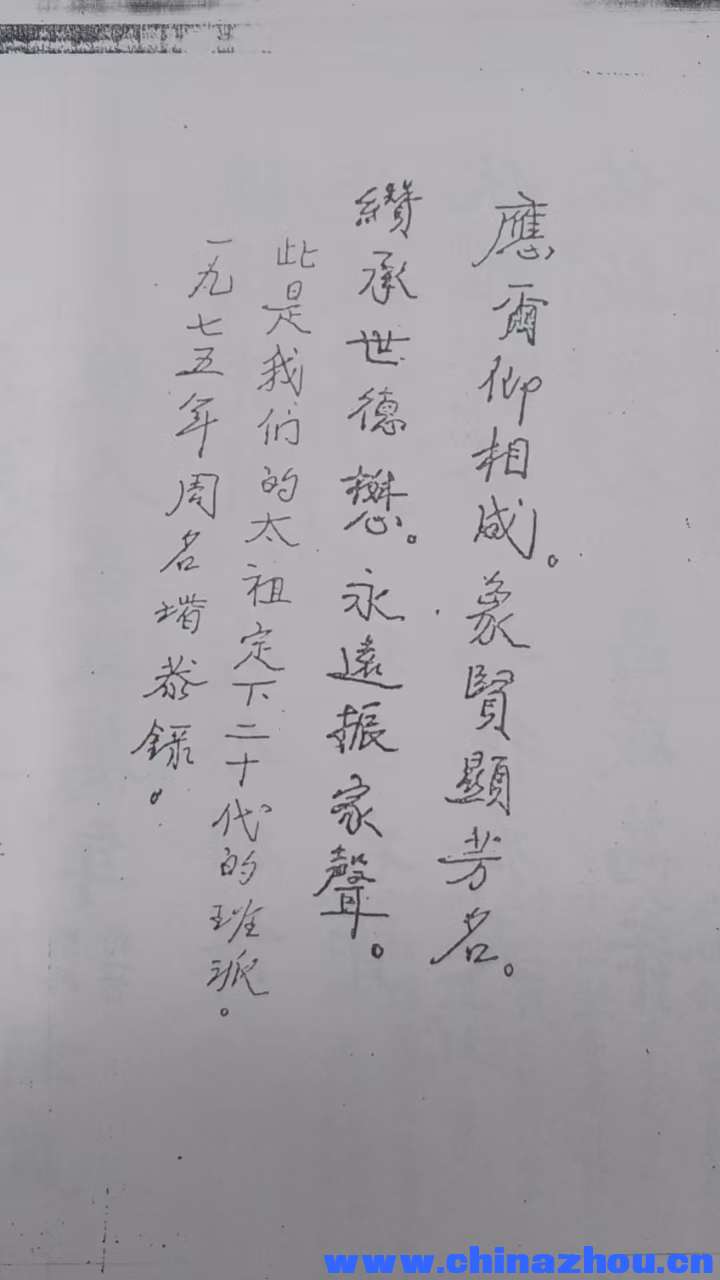 應爾仰相成。象賢顯芳名。
纘承世德懋。永遠振家聲。
此是我们的太祖定下二十代的班派。
一九七五年周名堦恭錄。
www.chinazhou.cn